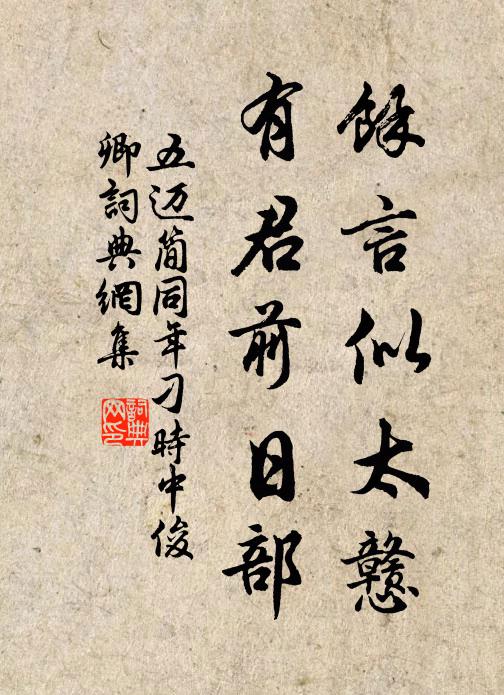 餘言似太戆
有君前日部
五迈简同年刁時中俊
卿詞典網集
詞典
网印